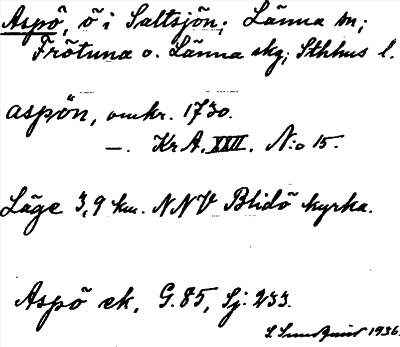 Aspö, ö i Saltsjön; Länna sn;
Frötuna o. Länna skg; Sthlms l.
aspön, omkr. 1730.
—. Kr A. XXII. N:o 15.
Läge 3,9 km. NNV Blidö kyrka.
Aspö ek, G. 85, Sj: 233.
1936.